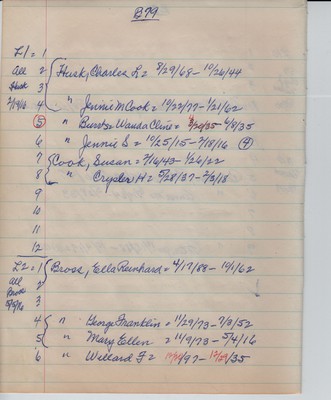 B79
L1 = 1
All 2 Husk, Charles L = 8/29/68 - 10/26/44
Husk 3
7/19/16 4 " Jennie M Cook = 10/22/77 - 1/21/62
5 " Wanda Cline = 6/8/35
6 " Jennie S = 10/25/15 - 7/18/16 4
7 Cook, Susan = 7/16/43 - 1/26/22
8 " Crysler H = 5/28/37 - 2/3/18
9
10
11
12
L2 = 1 Bross, Ella Reinhard = 4/17/88 - 10/1/62
All 2
Bross 3
4 " George Franklin = 11/29/73 - 7/3/52
5 " Mary Ellen = 11/9/73 - 5/4/16
6 " Willard F = 97 - 12/29/35